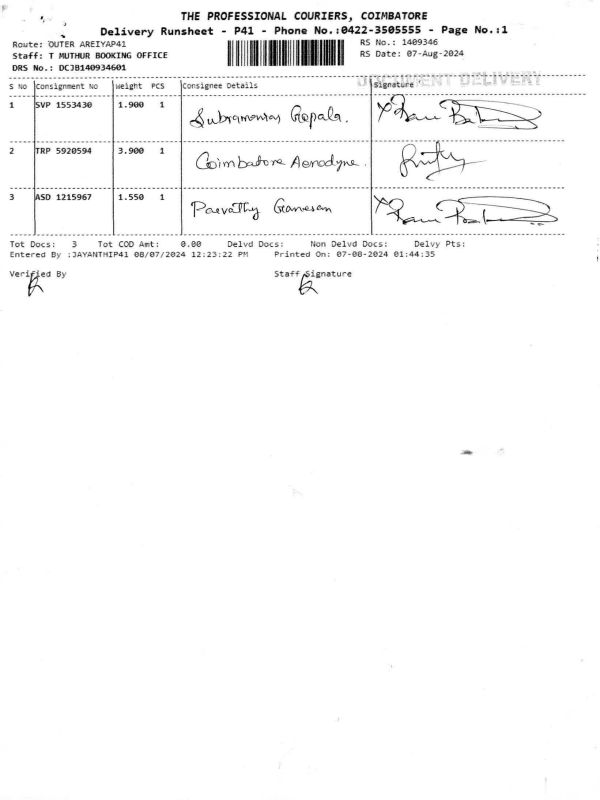 THE PROFESSIONAL COURIERS, COIMBATORE
Delivery Runsheet - P41 - Phone No.:0422-3505555 - Page No.:1
Route: OUTER AREIYAP41
RS No.: 1409346
Staff: T MUTHUR BOOKING OFFICE
RS Date: 07-Aug-2024
DRS No.: DCJB140934601
DOCUMENT DELIVERY
S No Consignment No Weight PCS Consignee Details Signature
1 SVP 1553430 1.900 1 Subramanian Gopala.
2 TRP 5920594 3.900 1 Coimbatore Aerodyne.
3 ASD 1215967 1.550 1 Parvathy Ganesan
Tot Docs: 3 Tot COD Amt: 0.00 Delvd Docs: Non Delvd Docs: Delvy Pts:
Entered By :JAYANTHIP41 08/07/2024 12:23:22 PM Printed On: 07-08-2024 01:44:35
Verified By Staff Signature